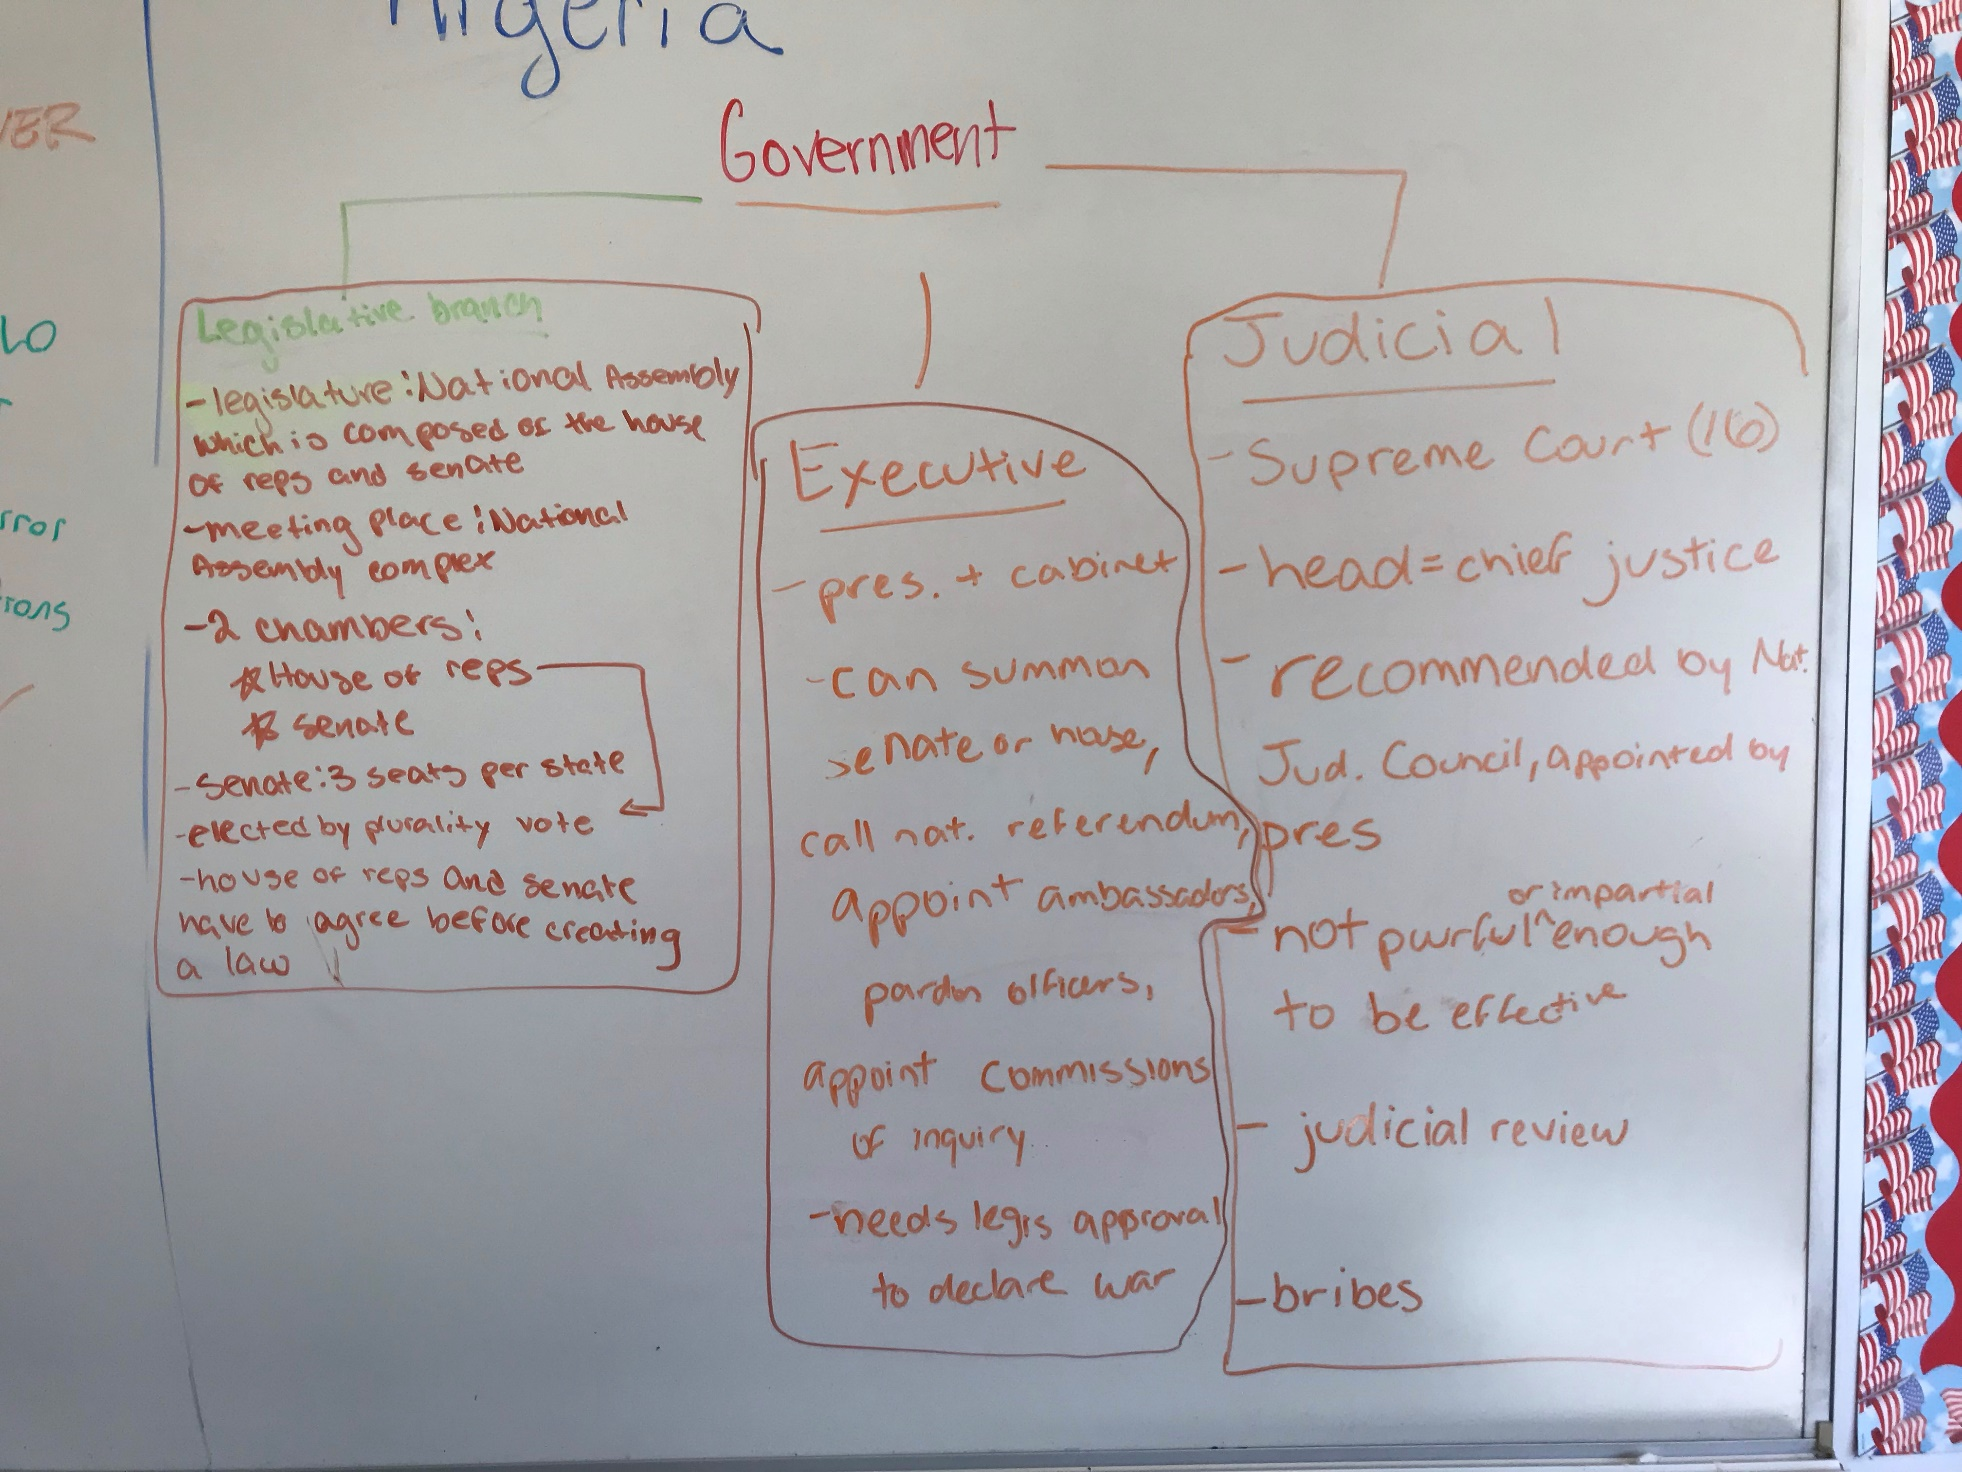 Nigeria
Government
VER
LO
rror
ions
Legislative branch
-legislature: National Assembly
which is composed of the house
of reps and senate
-meeting place: National
Assembly complex
-2 chambers:
☆ House of reps
☆ senate
-Senate: 3 seats per state
-elected by plurality vote
-house of reps and senate
have to agree before creating
a law
Executive
- pres. + cabinet
-can summon
senate or house,
call nat. referendum,
appoint ambassadors,
pardon officers,
appoint commissions
of inquiry
-needs legis approval
to declare war
Judicial
- Supreme Court (16)
- head = chief justice
- recommended by Nat.
Jud. Council, appointed by
pres
or impartial
- not pwrful ^ enough
to be effective
- judicial review
- bribes